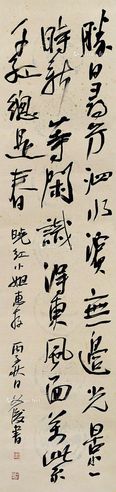 勝日尋芳泗水濱無邊光景一
時新等閑識得東風面萬紫
千紅總是春
曉紅小姐惠存 丙子秋日
書